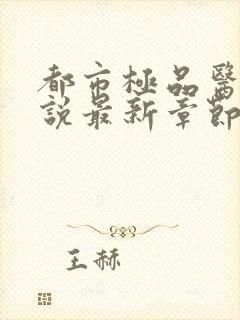 都市極品醫
說最新章節
王赫